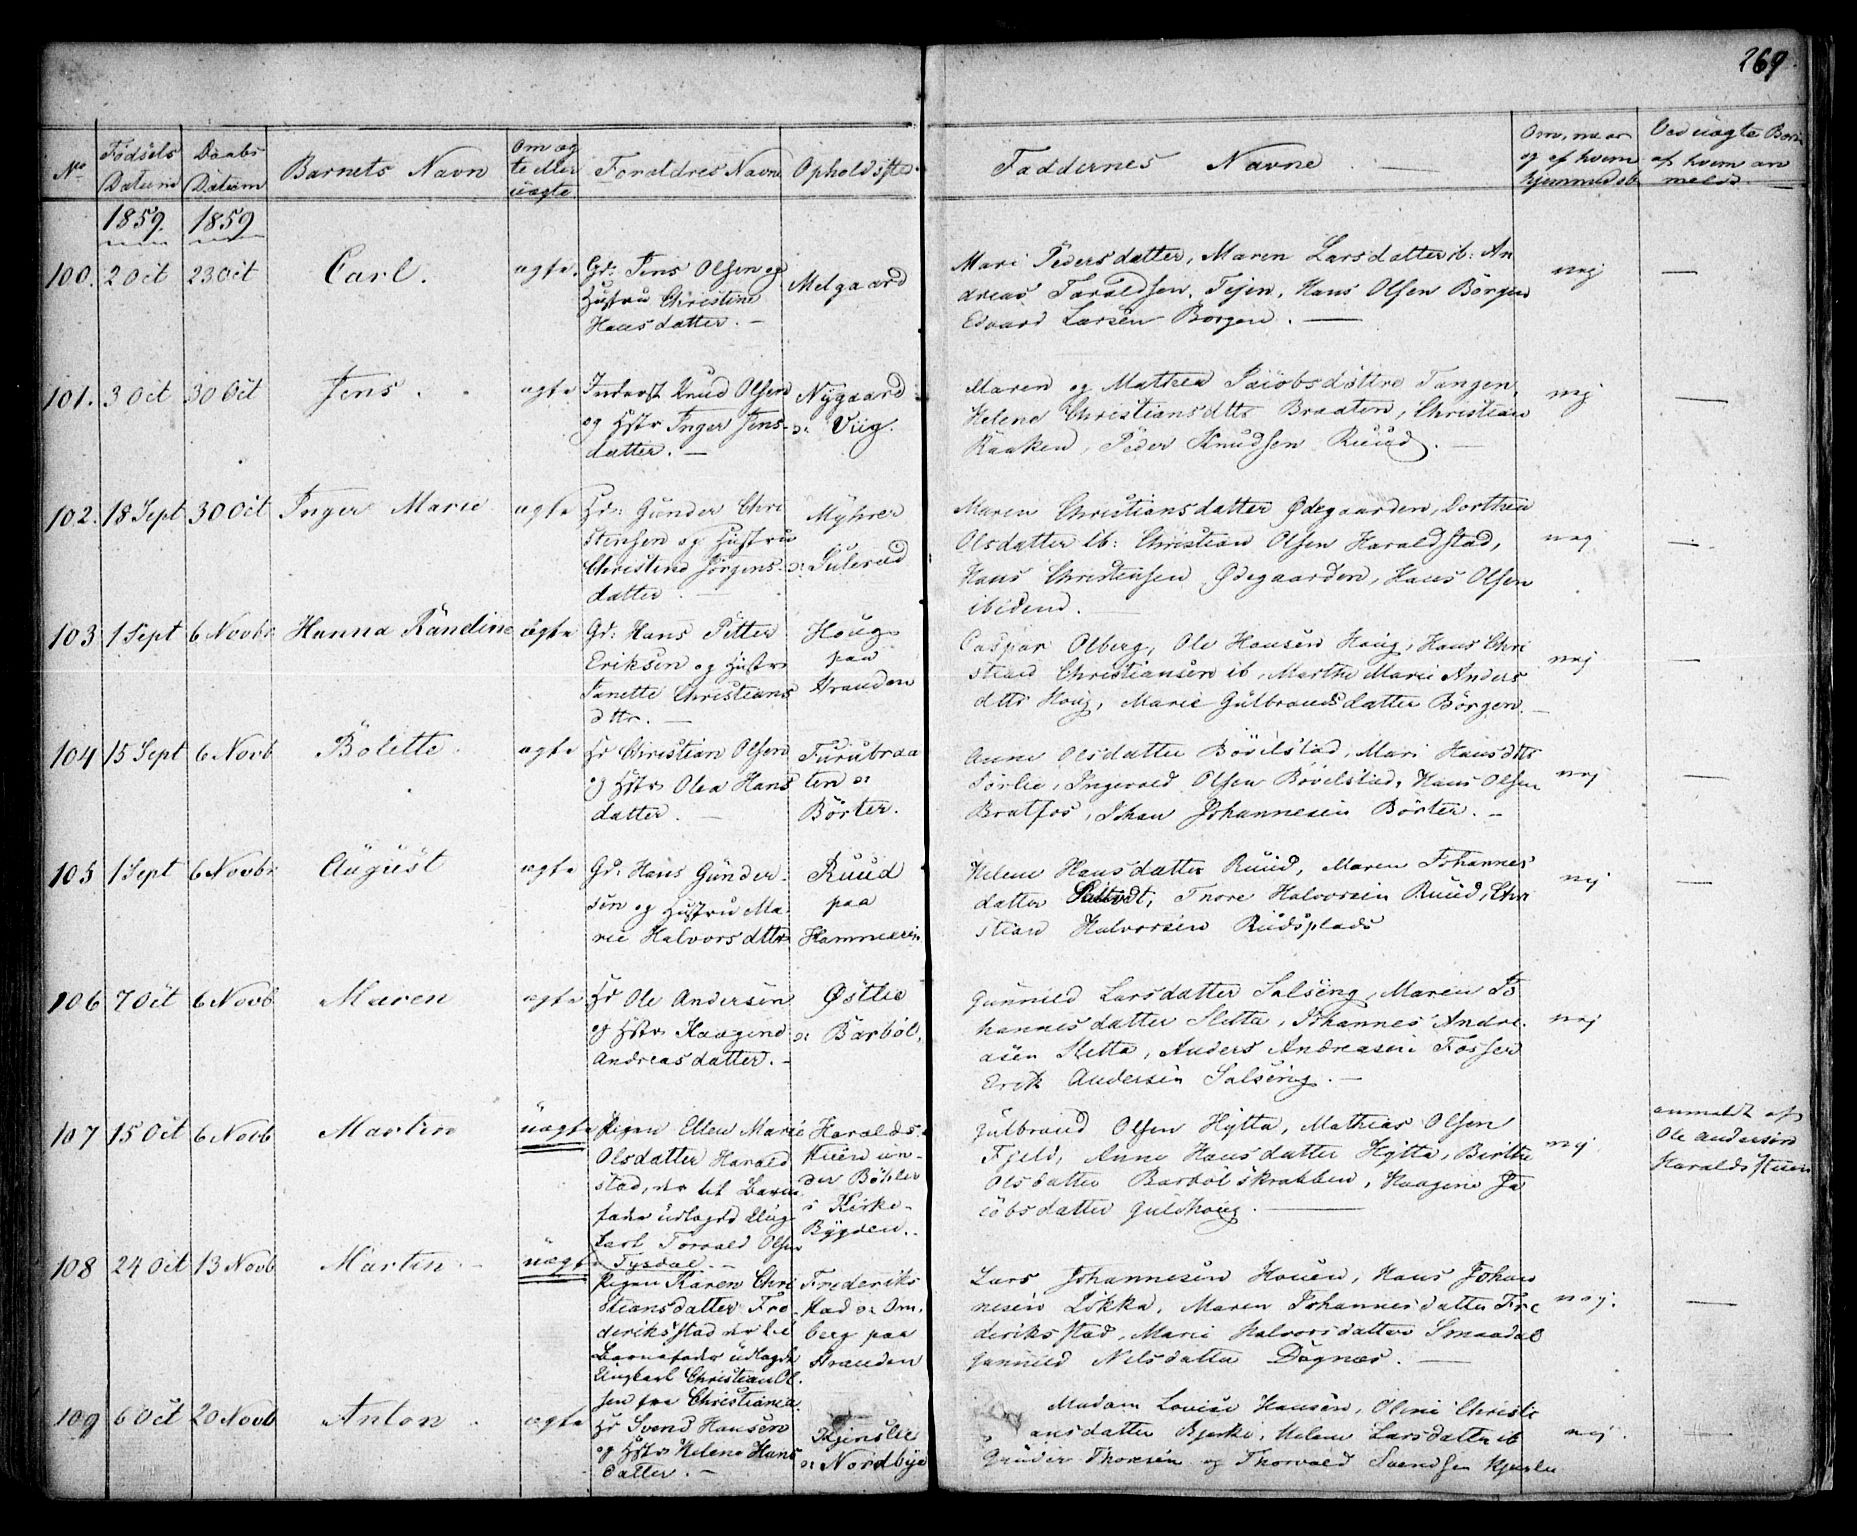 269.
No
Fødsels Datum
Daabs Datum
Barnets Navn
Om ægte eller uægte
Forældres Navne
Opholdsste
Faddernes Navne
Om, naar og af hvem hjemmedøb
Ved uægte Børn af hvem anmeldt.
1859. 1859
100. 2 Oct 23 Oct Carl. ægte.
Gd: Jens Olsen og
Hustru Christine
Hansdatter. —
Melgaard
Mari Pedersdatter, Maren Larsdatter ib: An
dreas Taraldsen, Hans Olsen Børgen
Edvard Larsen Borgen. —
nej —
101. 3 Oct 30 Oct Jens. ægte
Knud Olsen
og Hstr Inger Jens-
datter. —
Nygaard
Viig.
Maren og Mathea Jacobsdøttre Tangen,
Helene Christiansdttr Braaten, Christian
Raaken, Peder Knudsen Ruud. —
nej —
102. 18 Sept 30 Oct Inger Marie ægte
Hr: Gunder Chri
stensen og Hustru
Christine Jørgens-
datter. —
Myhrer
Sulerud
Maren Christiansdatter Ødegaarden, Dorthea
Olsdatter ib: Christian Olsen Haraldstad,
Hans Christensen Ødegaarden, Hans Olsen
ibidem. —
nej —
103 1 Sept 6 Novbr Hanna Randine ægte
Gd: Hans Petter
Eriksen og Hustr
Janette Christians
dttr. —
Houg
paa
Stranden
Caspar Olberg, Ole Hansen Houg, Hans Chri
stian Christiansen ib, Marthe Marie Anders
dttr Houg, Marie Gulbrandsdatter Børgen. —
nej —
104 15 Sept 6 Novb Bolette. ægte
Hr Christian Olsen
og Hstr Olea Hans
datter. —
Furubraa
ten
Börter.
Anne Olsdatter Bøvelstad, Mari Hansdttr
Sørlie, Ingevald Olsen Bøvelstad, Hans Olsen
Bratfos, Johan Johannesen Börter. —
nej —
105 1 Sept 6 Novbr August ægte
Gd: Hans Gunder-
sen og Hustru Ma-
rie Halvorsdttr
Ruud
paa
Hammeren
Helene Hansdatter Ruud, Maren Johannes
datter Thore Halvorsen Ruud, Chri
stian Halvorsen Rudsplads
nej —
106 7 Oct 6 Novb Maren ægte
Hr Ole Andersen
og Hstr Kaagine
Andreasdatter. —
Østlie
Barbøl.
Gunnild Larsdatter Salseng, Maren Jo
hannesdatter Sletta, Johannes Andre-
asen Sletta, Anders Andreasen Fosser
Erik Andersen Salseng. —
nej
107 15 Oct 6 Novb Martin uægte
Pigen Ellen Marie
Olsdatter Harald
stad, der til Barne
fader udlagde Ung
Carl Torvald Olsen
Tysdal. —
Haralds-
tuen un-
der Bøhler
i Kirke-
Bygden.
Gulbrand Olsen Hytta, Mathias Olsen
Fjeld, Anne Hansdatter Hytta, Birthe
Olsdatter Barbølskrabben, Kaagine Ja
cobsdatter Guldhoug. —
nej
anmeldt af
Ole Andersen
Haraldstuen
108 24 Oct 13 Novb Martin — uægte
Pigen Karen Chri
stiansdatter Fre
deriksstad der til
Barnefader udlagde
Ungkarl Christian Ol-
sen fra Christiania.
Frederiks
stad Om-
berg paa
Stranden
Lars Johannesen Houen, Hans Johan
nesen Løkka, Maren Johannesdatter Fre
deriksstad, Marie Halvorsdatter Smaadal
Gunnild Nilsdatter Dognæs. —
nej. —
109 6 Oct 20 Novb Anton. ægte
Hr Svend Hansen
og Hstr Helene Hans
datter. —
Kjinslie
Nordbye
Madam Lovise Hansen, Oline Christi
ansdatter Bjerke, Helene Larsdatter ib
Gunder Thoresen og Thorvald Svendsen
nej. —